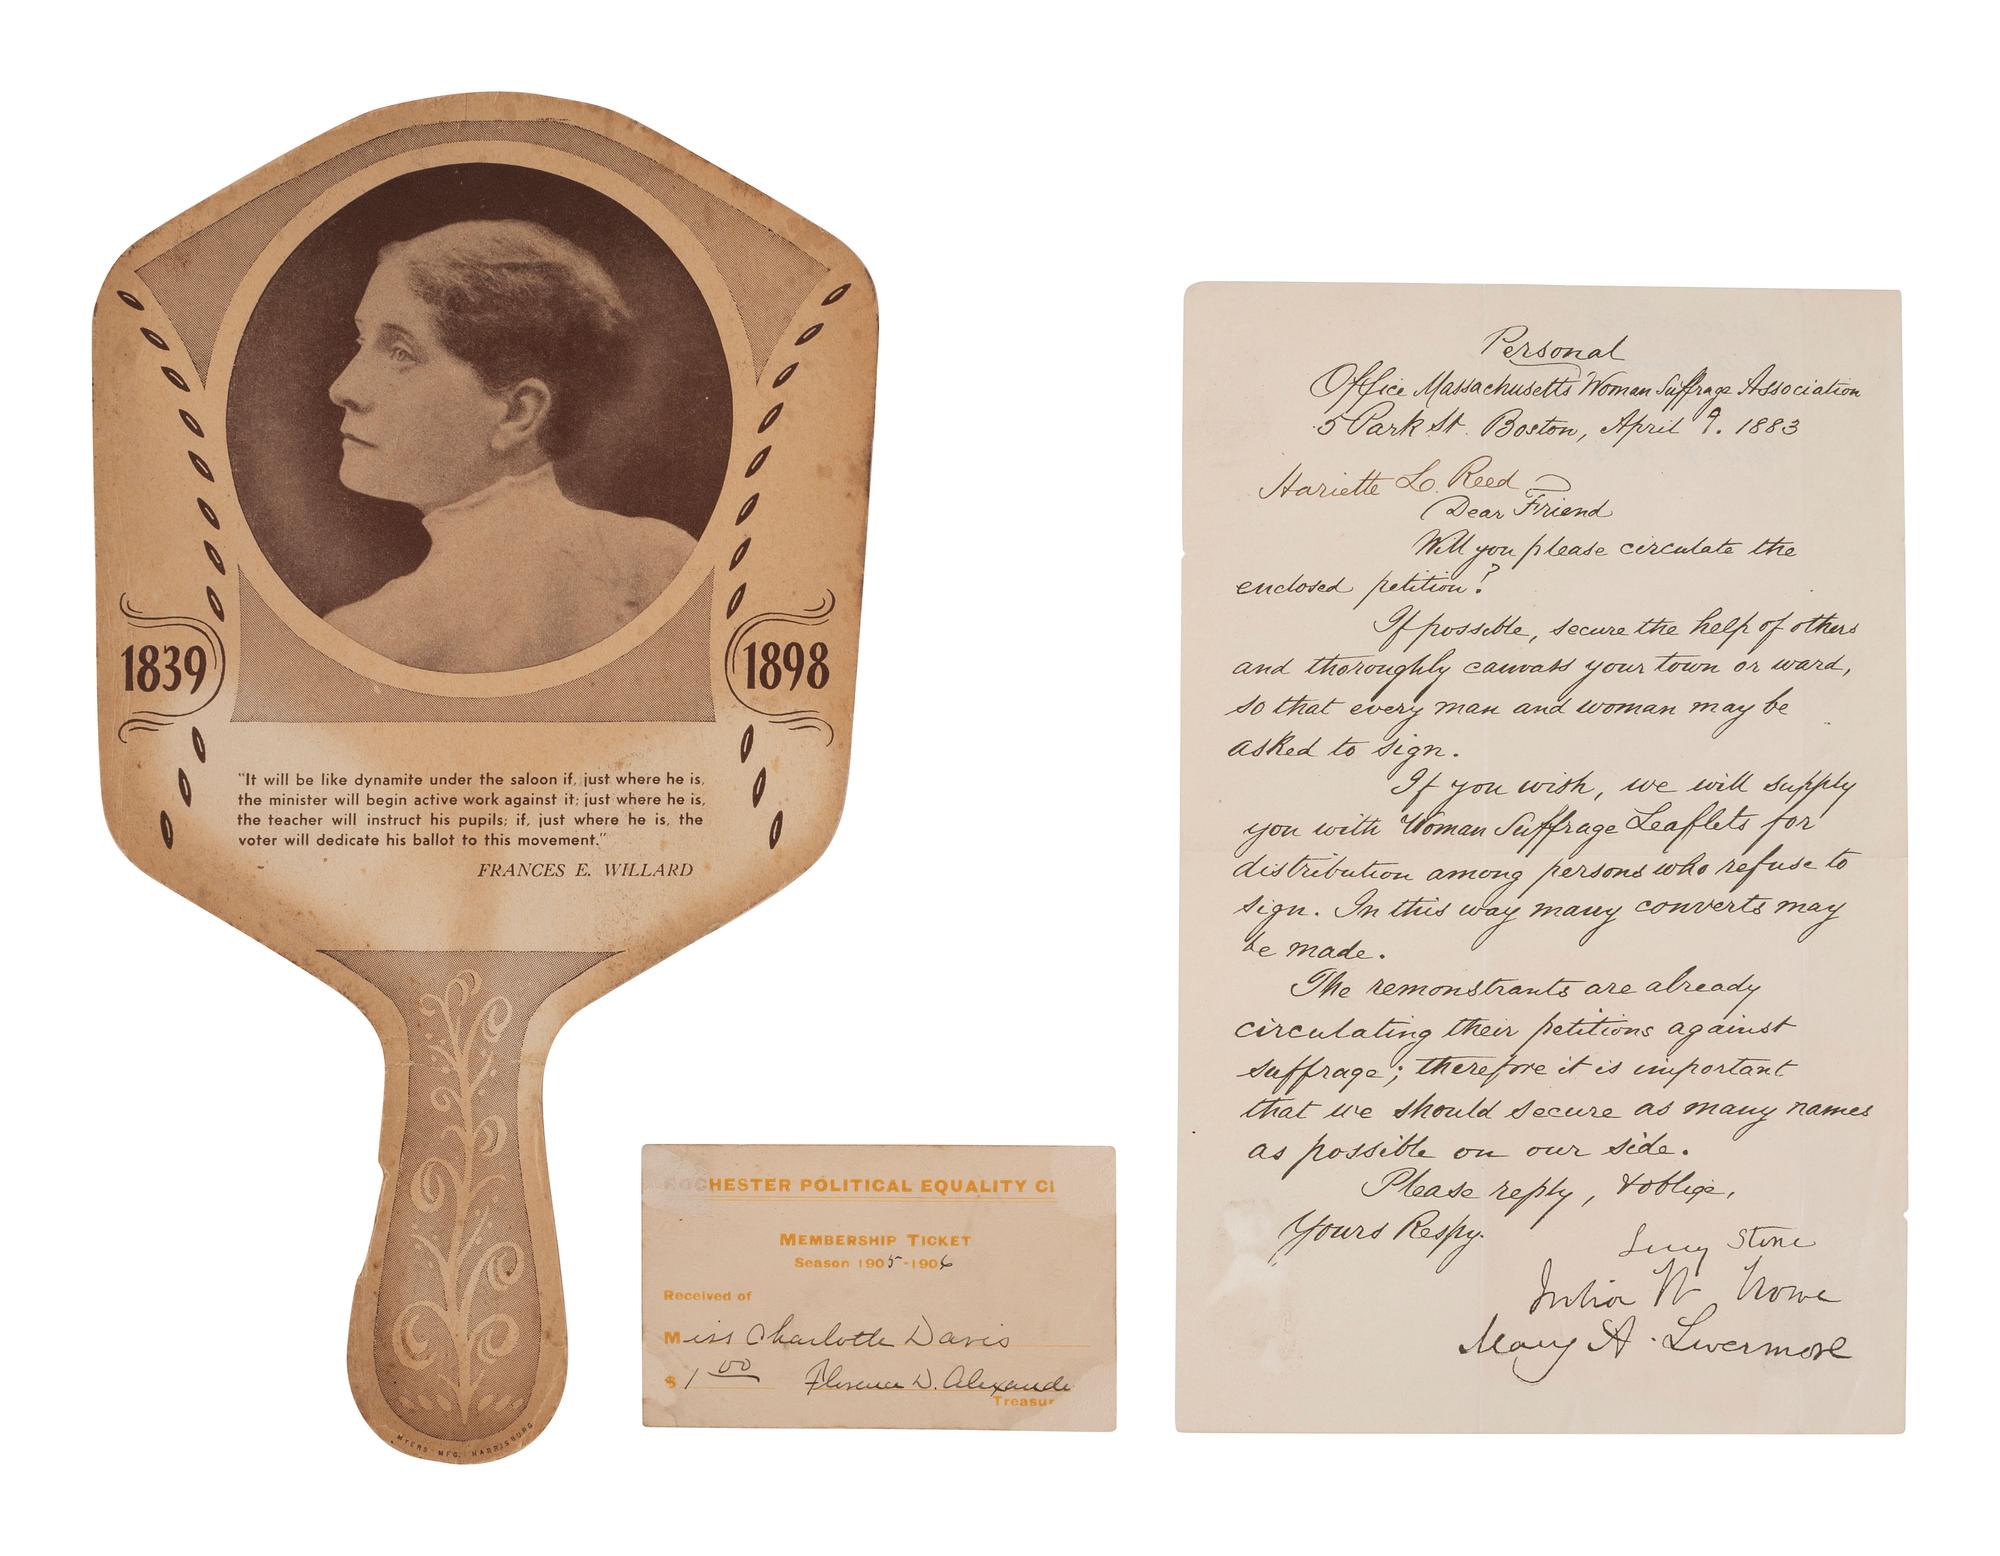 1839
1898
"It will be like dynamite under the saloon if, just where he is,
the minister will begin active work against it; just where he is,
the teacher will instruct his pupils; if, just where he is, the
voter will dedicate his ballot to this movement."
FRANCES E. WILLARD
MYERS MFG. HARRISBURG
ROCHESTER POLITICAL EQUALITY Cl
MEMBERSHIP TICKET
Season 1905-1906
Received of
Miss Charlotte Davis
$ 1 00 Florence D. Alexande
Treasur
Personal
Office Massachusetts Woman Suffrage Association
5 Park St. Boston, April 9. 1883
Hariette L. Reed
Dear Friend
Will you please circulate the
enclosed petition?
If possible, secure the help of others
and thoroughly canvass your town or ward,
so that every man and woman may be
asked to sign.
If you wish, we will supply
you with Woman Suffrage Leaflets for
distribution among persons who refuse to
sign. In this way many converts may
be made.
The remonstrants are already
circulating their petitions against
suffrage; therefore it is important
that we should secure as many names
as possible on our side.
Please reply, & oblige,
Yours Respy.
Lucy Stone
Julia W Howe
Mary A. Livermore